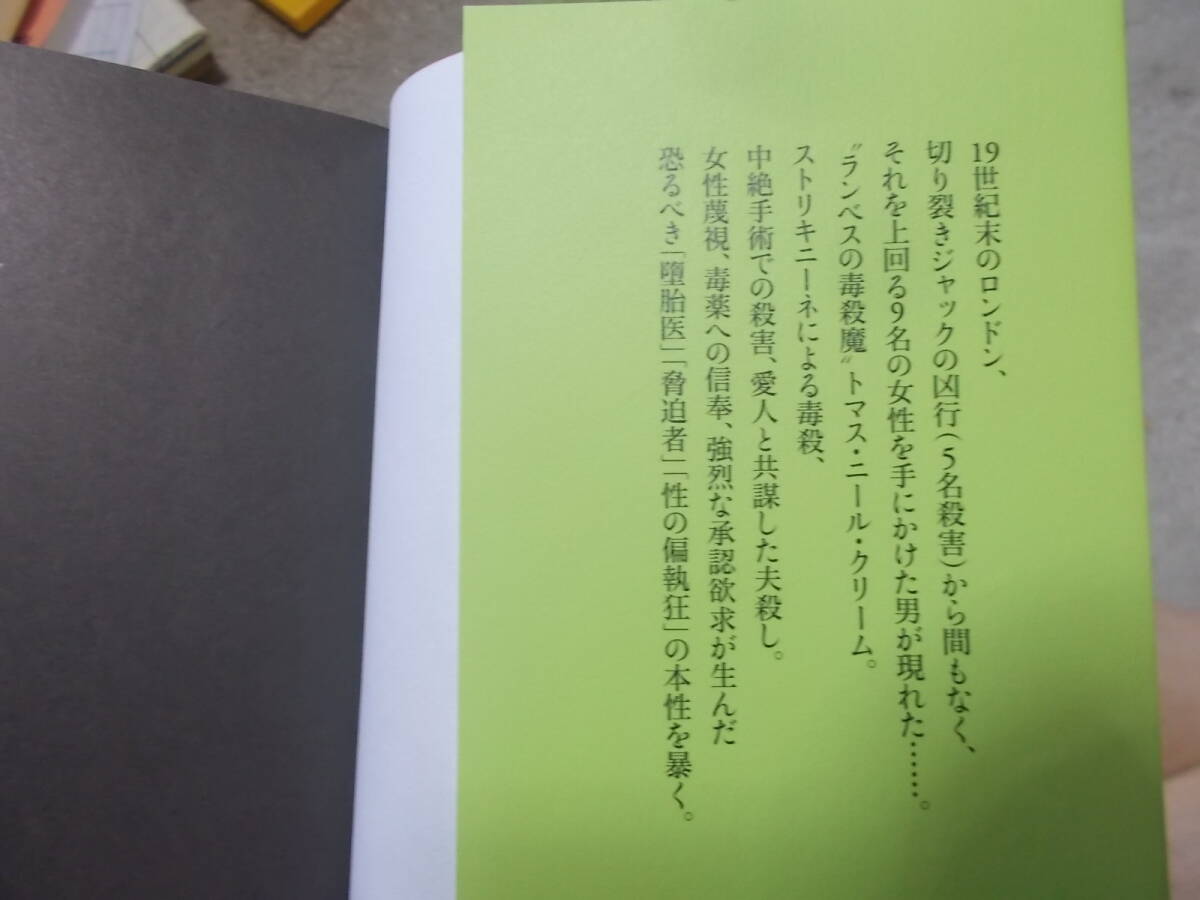 19世紀末のロンドン、
切り裂きジャックの凶行（5名殺害）から間もなく、
それを上回る9名の女性を手にかけた男が現れた……。
〝ランベスの毒殺魔〟トマス・ニール・クリーム。
ストリキニーネによる毒殺、
中絶手術での殺害、愛人と共謀した夫殺し。
女性蔑視、毒薬への信奉、強烈な承認欲求が生んだ
恐るべき「堕胎医」「脅迫者」「性の偏執狂」の本性を暴く。